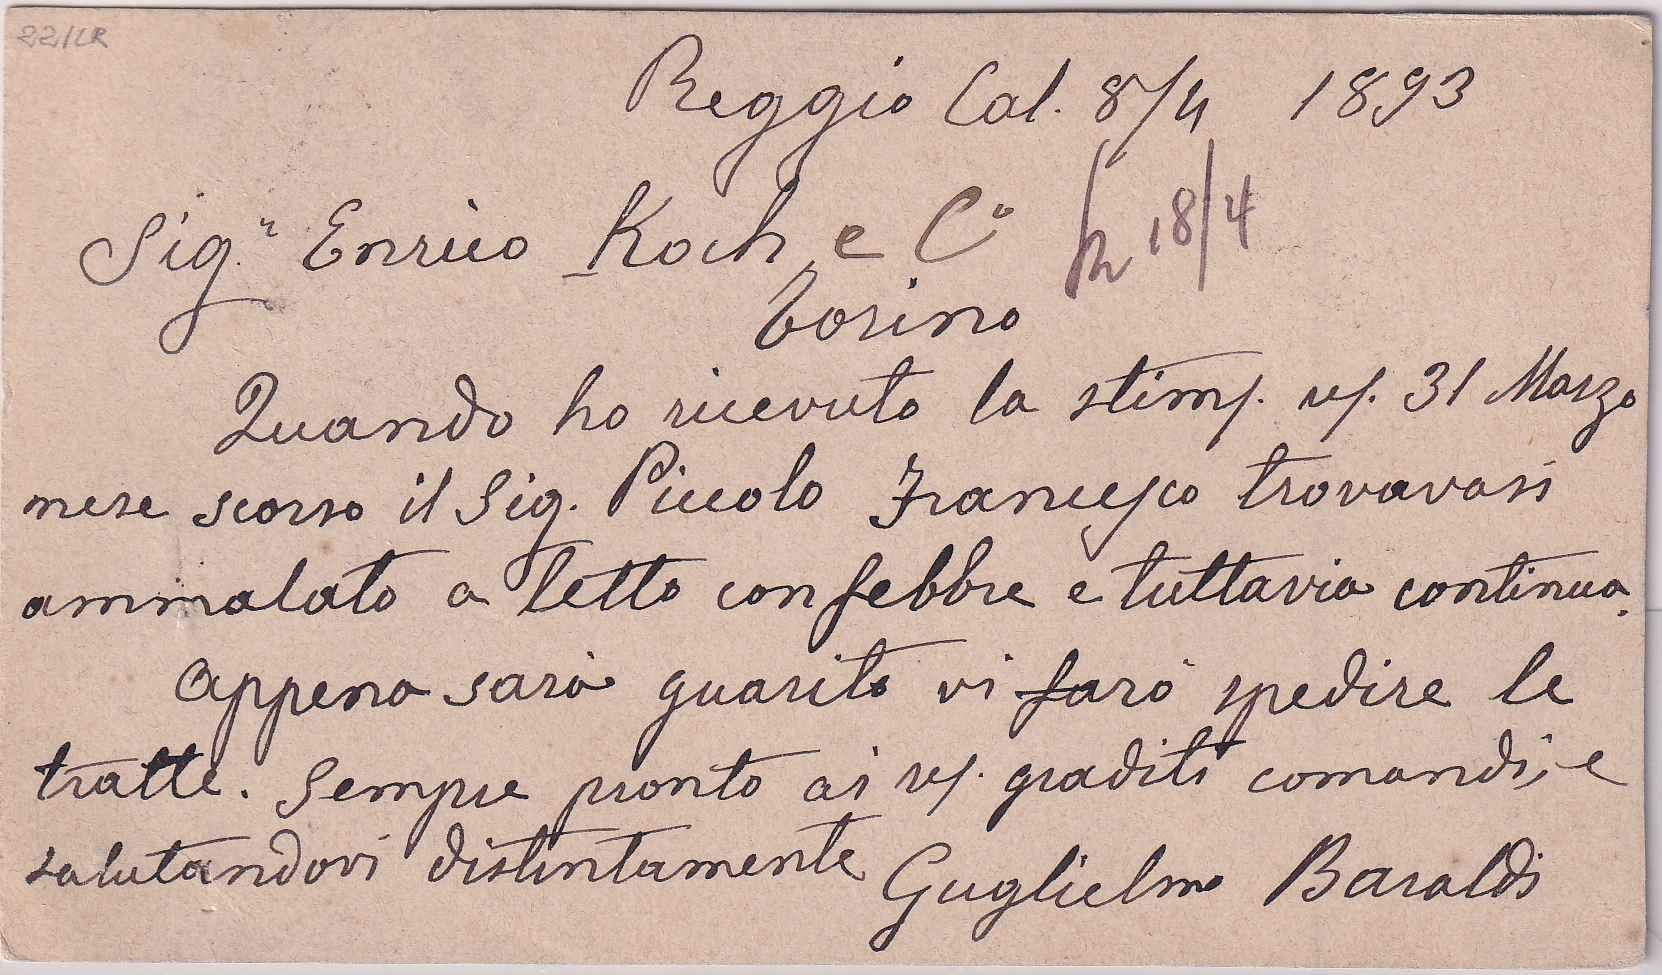 22/LR
Reggio Cal. 8/4 1893
Sig.ri Enrico Koch e Cº
18/4
Torino
Quando ho ricevuto la stimf. vf. 31 Marzo
mese scorso il Sig. Piccolo Francesco trovavasi
ammalato a letto con febbre e tuttavia continua.
Appena sarà guarito vi farò spedire le
tratte. Sempre pronto ai vf. graditi comandi, e
salutandovi distintamente Guglielmo Baraldi